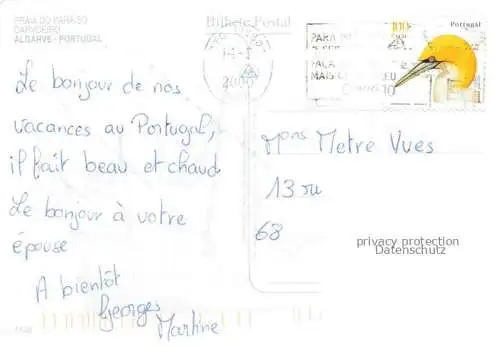 PRAIA DO PARAISO
CARVOEIRO
ALGARVE - PORTUGAL
Bilhete Postal
Le bonjour de nos
vacances au Portugal,
il fait beau et chaud
Le bonjour à votre
épouse
A bientôt
Georges
Martine
2000
PARA
FAÇA
MAIS
100
Portugal
Mons Metre Vues
13 ru
68
privacy protection
Datenschutz